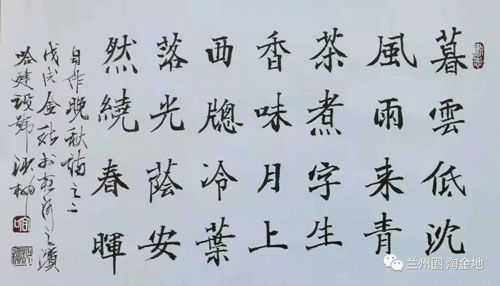 暮雲低沈
風雨来青
茶煮字生
香味月上
西牕冷葉
落光蔭安
然繞春暉
自作晚秋之二
戊戌金書於之濱
哈建設號柳
兰州圈 淘金地